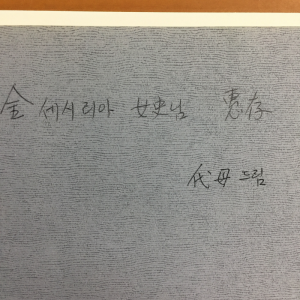 金 세시리아 女史님 惠存
代母 드림